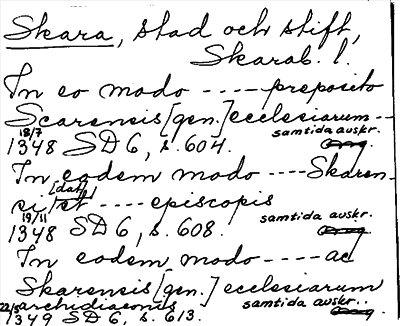 Skara, stad och stift,
Skarab. l.
In eo modo ---- preposito
Scarensis [gen.] ecclesiarum --
18/7 samtida auskr.
1348 SD 6, s. 604.
In eodem modo ---- Skaren-
si [dat.] et ---- episcopis
19/11 samtida auskr.
1348 SD 6, s. 608.
In eodem modo ---- ac
Skarensis [gen.] ecclesiarum
archidiaconis samtida auskr..
1349 SD 6, s. 613.